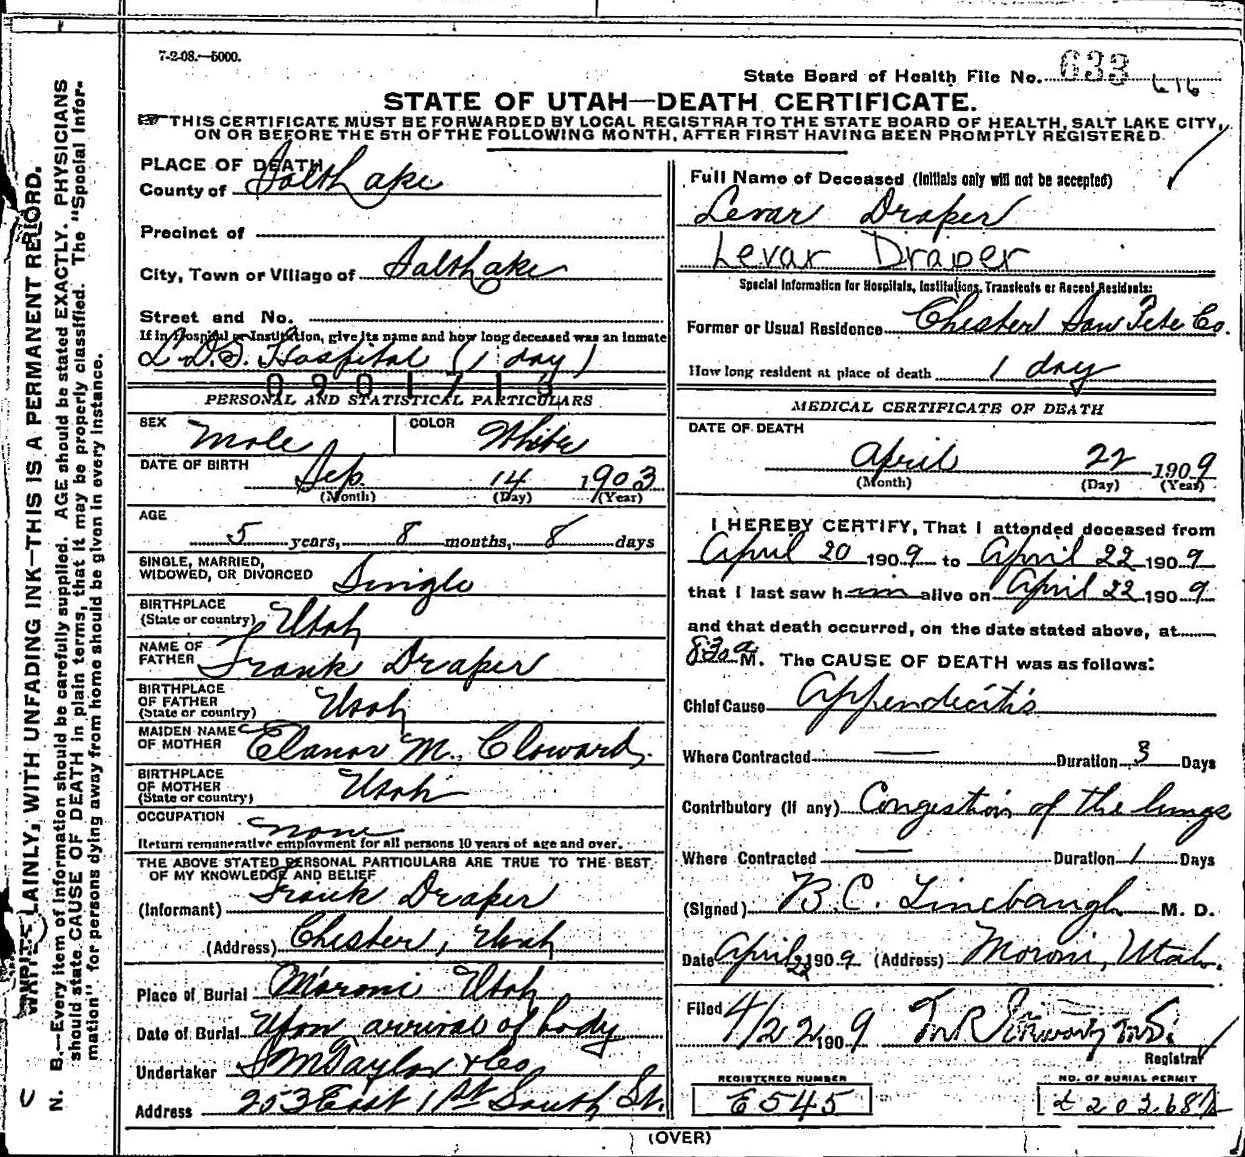 7-2-08.—5000.
State Board of Health File No. 633 616
STATE OF UTAH—DEATH CERTIFICATE.
THIS CERTIFICATE MUST BE FORWARDED BY LOCAL REGISTRAR TO THE STATE BOARD OF HEALTH, SALT LAKE CITY,
ON OR BEFORE THE 5TH OF THE FOLLOWING MONTH, AFTER FIRST HAVING BEEN PROMPTLY REGISTERED.
PLACE OF DEATH
County of Salt Lake
Precinct of
City, Town or Village of Salt Lake
Street and No.
If in Hospital or Institution, give its name and how long deceased was an inmate
L.D.S. Hospital (1 day)
0901713
PERSONAL AND STATISTICAL PARTICULARS
SEX Male COLOR White
DATE OF BIRTH Sep. 14 1903
(Month) (Day) (Year)
AGE
5 years, 8 months, 8 days
SINGLE, MARRIED,
WIDOWED, OR DIVORCED Single
BIRTHPLACE
(State or country) Utah
NAME OF
FATHER Frank Draper
BIRTHPLACE
OF FATHER
(State or country) Utah
MAIDEN NAME
OF MOTHER Elanor M. Cloward
BIRTHPLACE
OF MOTHER
(State or country) Utah
OCCUPATION none
Return remunerative employment for all persons 10 years of age and over.
THE ABOVE STATED PERSONAL PARTICULARS ARE TRUE TO THE BEST
OF MY KNOWLEDGE AND BELIEF
(Informant) Frank Draper
(Address) Chester, Utah
Place of Burial Moroni Utah
Date of Burial Upon arrival of body
Undertaker S M Taylor & Co
Address 253 East 1st South St.
Full Name of Deceased (Initials only will not be accepted)
Levar Draper
Levar Draper
Special Information for Hospitals, Institutions, Transients or Recent Residents:
Former or Usual Residence Chester San Pete Co.
How long resident at place of death 1 day
MEDICAL CERTIFICATE OF DEATH
DATE OF DEATH
April 22 1909
(Month) (Day) (Year)
I HEREBY CERTIFY, That I attended deceased from
April 20 1909 to April 22 1909
that I last saw him alive on April 22 1909
and that death occurred, on the date stated above, at
8:30 a M. The CAUSE OF DEATH was as follows:
Chief Cause Appendicitis
Where Contracted Duration 3 Days
Contributory (if any) Congestion of the lungs
Where Contracted Duration 1 Days
(Signed) B.C. Linebaugh M. D.
Date April 22 1909 (Address) Moroni, Utah.
Filed 4/22 1909
Registrar
REGISTERED NUMBER
E545
NO. OF BURIAL PERMIT
(OVER)
WRITE PLAINLY, WITH UNFADING INK—THIS IS A PERMANENT RECORD.
N. B.—Every item of information should be carefully supplied. AGE should be stated EXACTLY. PHYSICIANS
should state CAUSE OF DEATH in plain terms, that it may be properly classified. The "Special Infor-
mation" for persons dying away from home should be given in every instance.